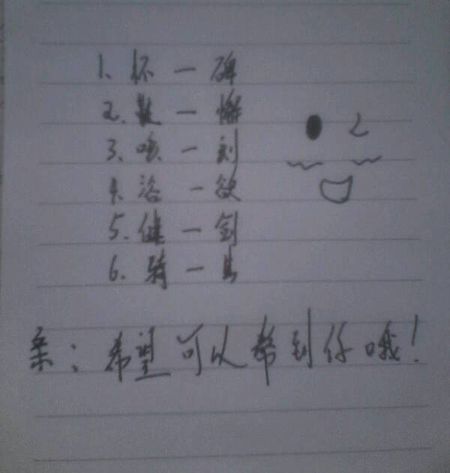 1. 杯 — 碑
2. — 懈
3. 咳 — 刻
4. 浴 — 欲
5. 健 — 剑
6. 骑 —
亲：希望可以帮到你哦！